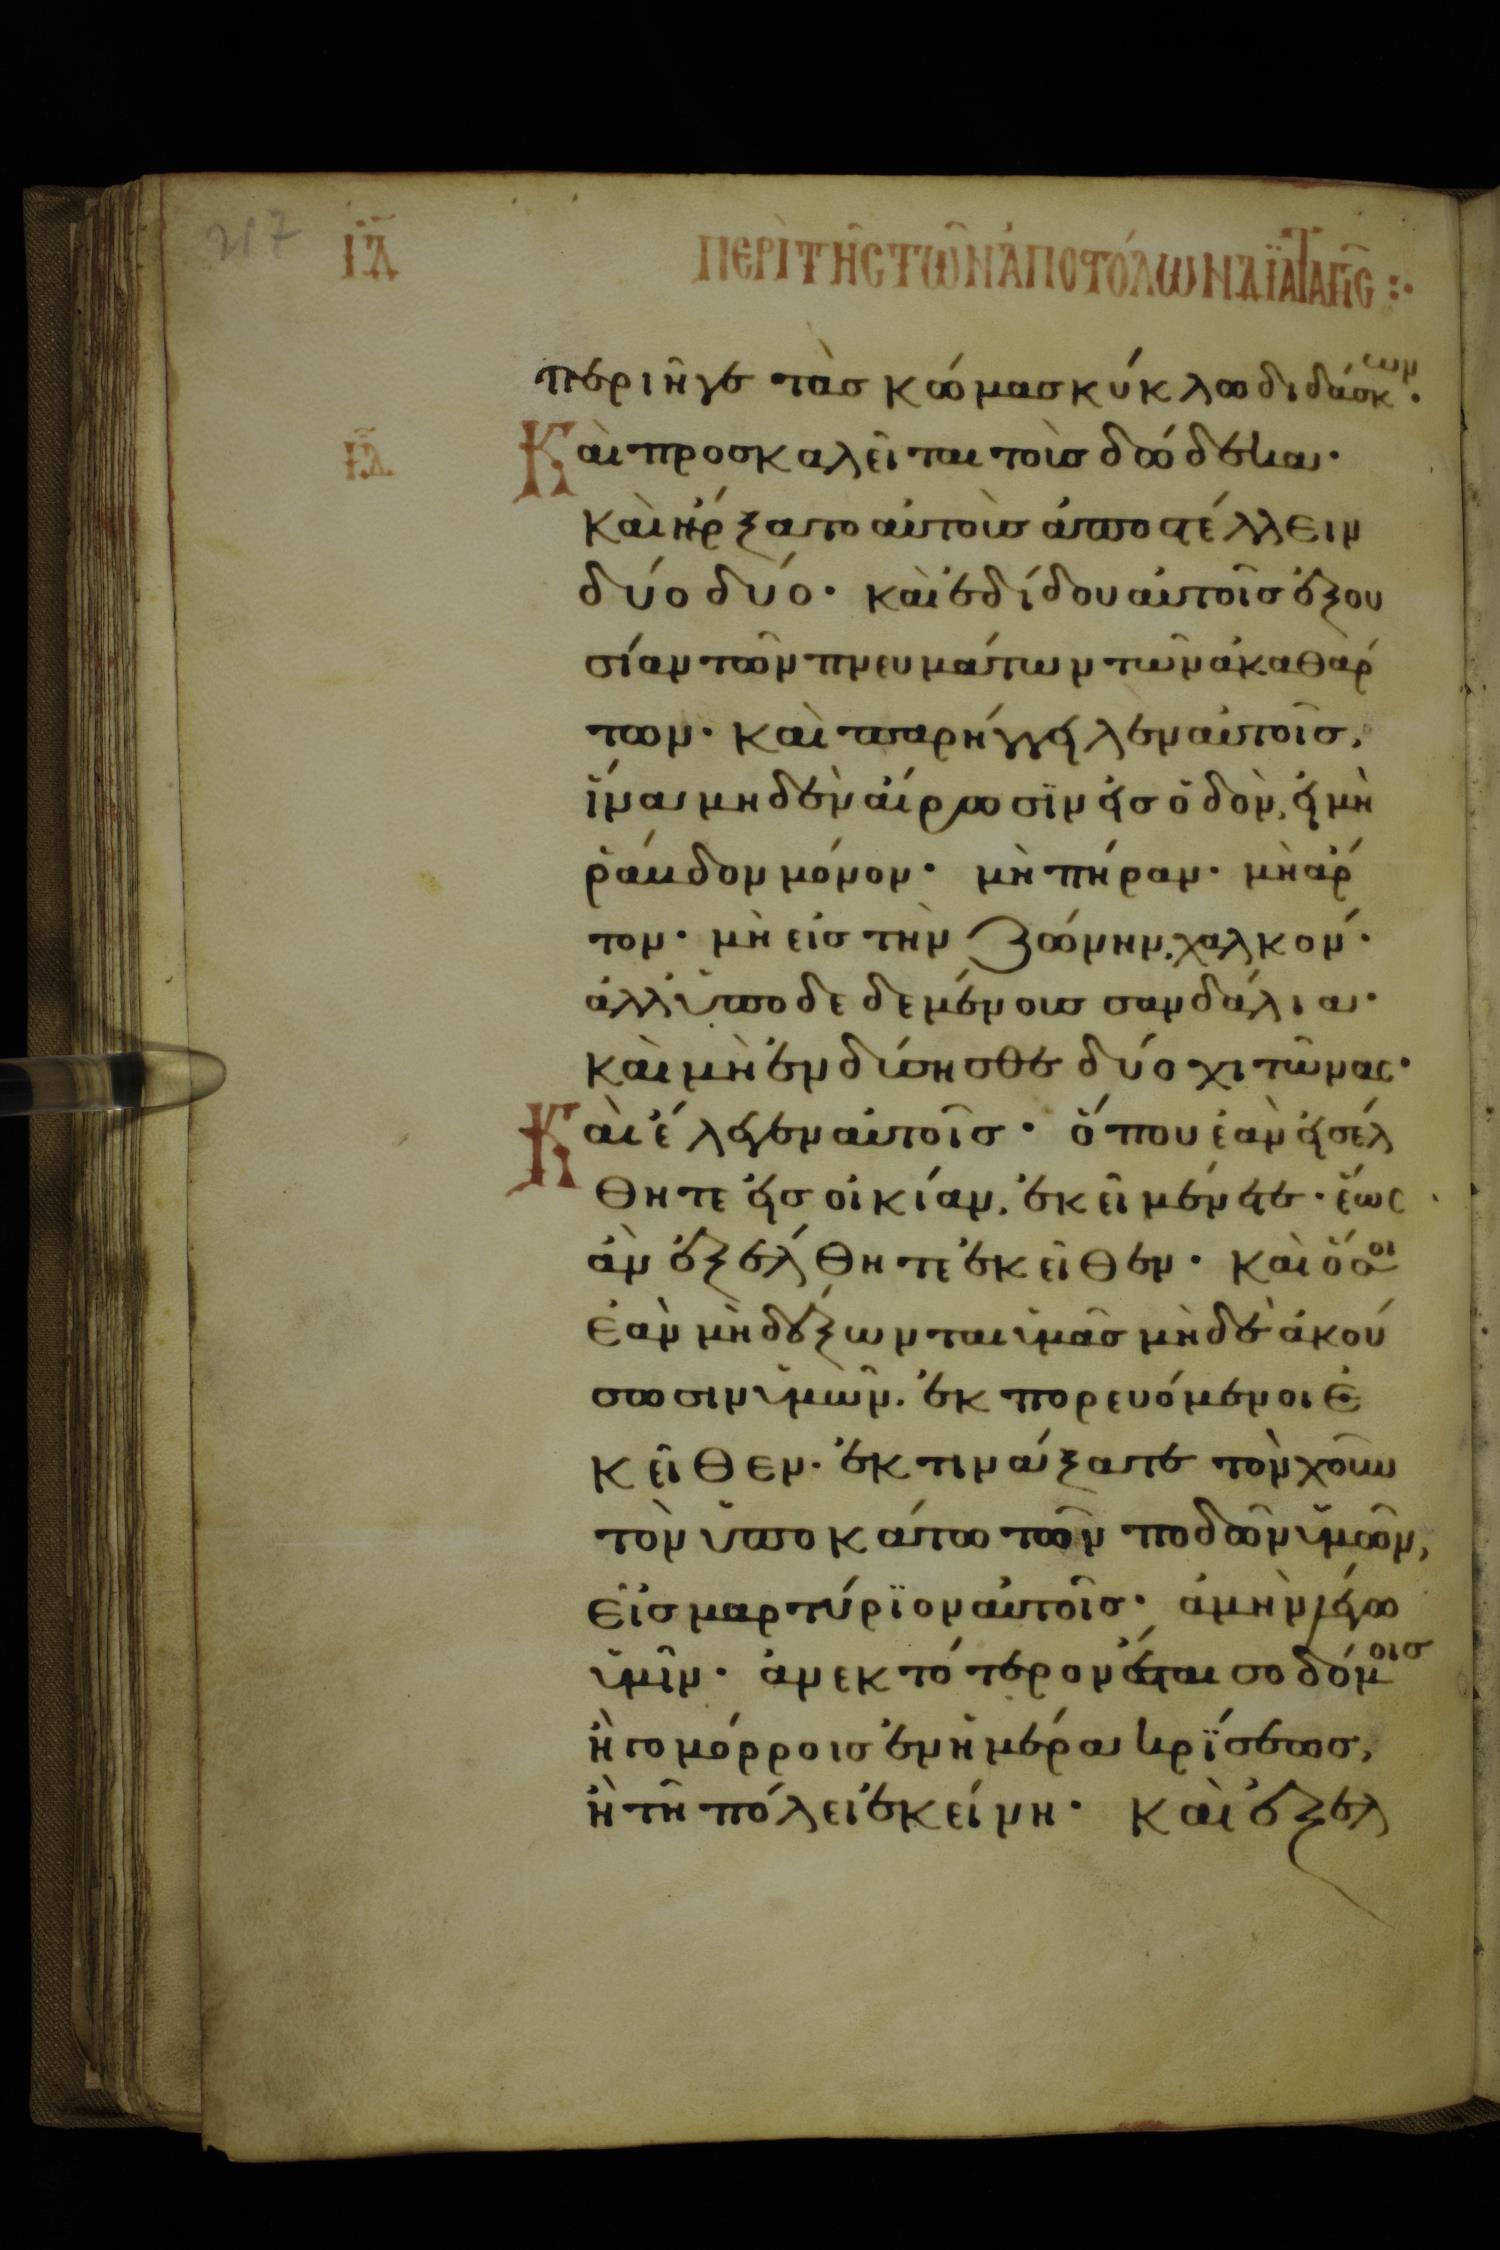 217
ΙΔ ΠΕΡῚ ΤΗ͂Σ ΤΩ͂Ν ἈΠΟΣΤΌΛΩΝ ΔΪΑΤΑΓΗ͂Σ :·
περιῆγε τὰσ κώμασ κύκλω διδάσκων·
Καὶ προσκαλεῖται τοὺσ δώδεκα·
καὶ ἤρξατο αὐτοὺσ ἀποστέλλειν
δύο δύο· καὶ ἐδίδου αὐτοῖσ ἐξου
σίαν τῶν πνευμάτων τῶν ἀκαθάρ
των· καὶ παρήγγειλεν αὐτοῖσ,
ἵνα μηδὲν αἴρωσϊν εἰσ ὁδὸν, εἰ μὴ
ῥάβδον μόνον· μὴ πήραν· μὴ ἄρ
τον· μὴ εἰσ τὴν ζώνην, χαλκόν·
ἀλλ' ὑποδεδεμένουσ σανδάλια·
καὶ μὴ ἐνδύσησθε δύο χιτῶνας·
Καὶ ἔλεγεν αὐτοῖσ· ὅπου ἐὰν εἰσέλ
θητε εἰσ οἰκίαν, ἐκεῖ μένετε· ἕως
ἂν ἐξέλθητε ἐκεῖθεν· καὶ ὅσοι
ἐὰν μὴ δέξωνται ὑμᾶσ μὴδὲ ἀκού
σωσιν ὑμῶν. ἐκπορευόμενοι ἐ
κεῖθεν· ἐκτινάξατε τὸν χοῦν
τὸν ὑποκάτω τῶν ποδῶν ὑμῶν,
εἰσ μαρτύρϊον αὐτοῖσ· ἀμὴν λέγω
ὑμῖν· ἀνεκτότερον ἔσται σοδόμοισ
ἢ γομόρροισ ἐν ἡμέρα κρϊσεωσ,
ἢ τῆ πόλει ἐκείνη· Καὶ ἐξελ